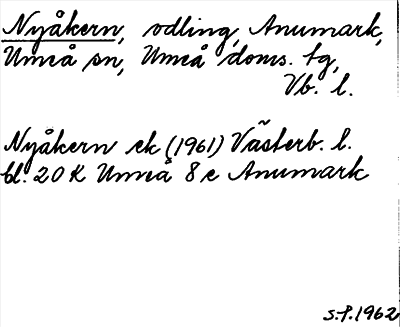 Nyåkern, odling, Anumark,
Umeå sn, Umeå doms. tg,
Vb. l.
Nyåkern ek (1961) Västerb. l.
bl. 20 K Umeå 8 e Anumark
S.P. 1962